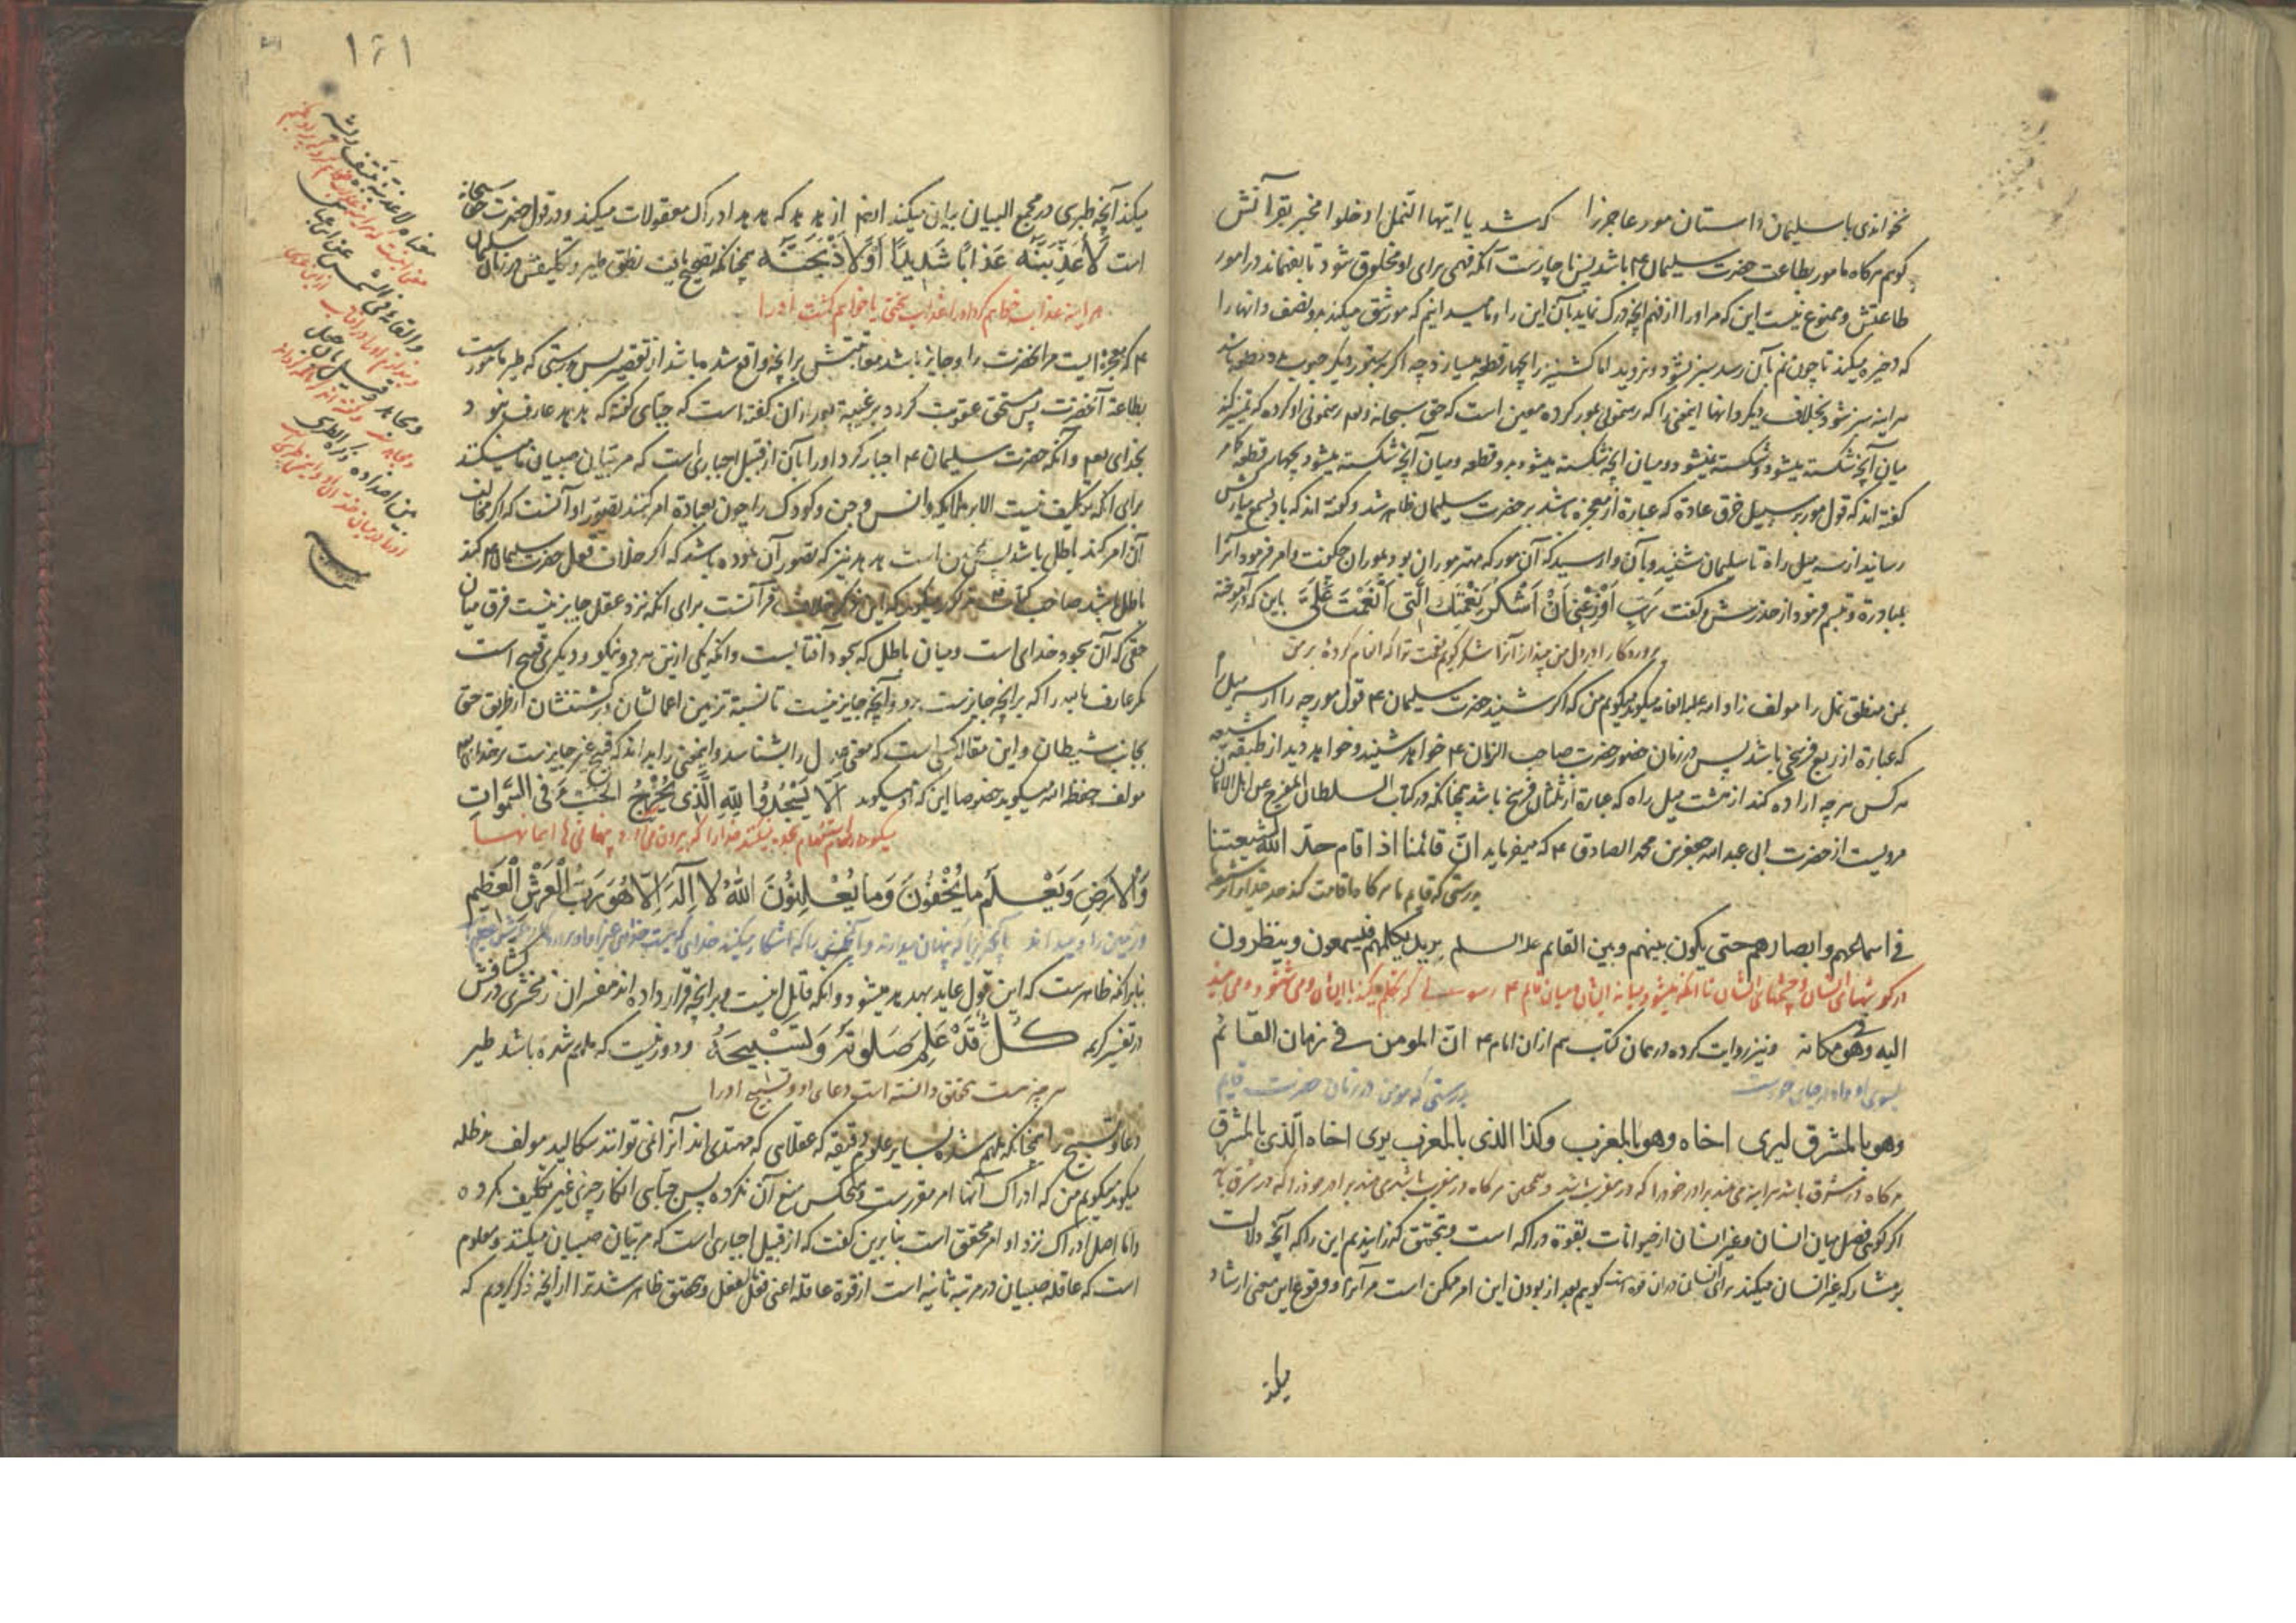 نخواندی با سلیمان داستان مور عاجز را که شد یا ایها النمل ادخلوا مخبر بقرآنش
کویم هرکاه مامور بطاعت حضرت سلیمان ۴ باشد پس ناچارست آنکه فهمی برای او مخلوق شود تا بفهماند در امور
طاعتش و ممنوع نیست این که مر اورا از فهم آنچه درک نماید بآن این را و ما میدانیم که مور شق میکند دو نصف دانها را
که ذخیره میکند تا چون نم بآن رسد سبز نشود و نروید اما کشنیز را چهار قطعه میسازد چه اکر بدستور دیکر حبوب دو قطعه باشد
هر اینه سبز شود بخلاف دیکر دانها اینمعنی را که رهنمونی بمور کرده معین است که حق سبحانه وتعالی رهنمونی او کرده که تمییز کند
میان آنچه شکسته میشود و شکسته نمیشود و میان آنچه شکسته میشود بدو قطعه و میان آنچه شکسته میشود بچهار قطعه
کفته اند که قول مور بر سبیل خرق عاده که عبارة از معجزه باشد بر حضرت سلیمان ظاهر شد و کفته اند که باد بسمع مبارکش
رسانید از سه میل راه تا سلیمان شنید و بآن وارسید که آن مور که مهتر موران بود بموران چکفت و امر فرمود آنرا
بمبادرة و تبسم فرمود از حذرش و کفت رَبِّ اَوْزِعْنی اَنْ اَشْکُرَ نِعْمَتَکَ الَّتی اَنْعَمْتَ عَلَیَّ باین که آموخته
پروردکارا در دل من بینداز آنرا شکر کویم نعمت ترا که انعام کردهٔ بر من
بمن منطق نمل را مولف زاد الله علیه الطافه میکوید میکویم من که اکر شنید حضرت سلیمان ۴ قول مورچه را از سه میل راه
که عبارة از ربع فرسخی باشد پس در زمان حضور حضرت صاحب الزمان ۴ خواهد شنید و خواهد دید از طبقه شیعه
هر کس هر چه اراده کند از هشت میل راه که عبارة از ثلثان فرسخ باشد چنانکه در کتاب السلطان المفرج عن اهل الایمان
مرویست از حضرت ابی عبدالله جعفر بن محمد الصادق ۴ که میفرماید انّ قائمنا اذا قام حدّ الله لشیعتنا
بدرستی که قایم ما هر کاه اقامت کند حد خدا را از
فی اسماعهم وابصارهم حتی یکون بینهم وبین القائم علیه السلم برید یکلمهم فیسمعون وینظرون
در کوشهای ایشان و چشمهای ایشان تا آنکه میشود میانه ایشان و میان قایم ۴ رسولی که تکلم میکند با ایشان و می شنود و می بیند
الیه وهو فی مکانه ونیز روایت کرده در همان کتاب هم از ان امام ۴ انّ المومن فی زمان القائم
بسوی او و او در جای خودست بدرستی که مومن در زمان حضرت قایم
وهو بالمشرق لیری اخاه وهو بالمغرب وکذا الذی بالمغرب یری اخاه الّذی بالمشرق
هر کاه در مشرق باشد هر اینه می بیند برادر خود را که در مغرب باشد و همچنین هر کاه در مغرب باشد می بیند برادر خود را که در مشرق باشد
اکر کوئی فصل میان انسان و غیر انسان از حیوانات بقوة دراکه است و بتحقق کذرانیدیم این را که آنچه دلالت
بر مشارکه غیر انسان میکند برای انسان در ان قوه هست کویم بعد از بودن این امر ممکن است مر آنرا و وقوع این معنی ارشاد
میکند
۱۶۱
میکند آنچه طبری در مجمع البیان بیان میکند از فهم از هدهد که هدهد ادراک معقولات میکند و در قول حضرت حق سبحانه
است لَاُعَذِّبَنَّهُ عَذابًا شَدیدًا اَوْ لَاَذْبَحَنَّهُ چنانکه تصحیح یافت نطق طیر و تکلیفش در زمان سلیمان
هر اینه عذاب خواهم کرد او را عذاب سختی یا خواهم کشت او را
۴ که معجزه ایست مر انحضرت را و جایز باشد معاقبتش بر آنچه واقع شده باشد از تقصیر پس بدرستی که طیر مامورست
بطاعة آنحضرت پس مستحق عقوبت کردد بر غیبة بعد از ان کفته است که جبّائی کفته که هدهد عارف نبود
بخدای تعالی و آنکه حضرت سلیمان ۴ اخبار کرد او را بآن از قبیل اخباری است که مربّیان صبیان ما میکنند
برای آنکه تکلیف نیست الا بر ملایکه و انس و جن و کودک را چون بعبادة امر کنند تصوّر او آنست که اکر مخالفت
آن امر کند باطل باشد پس همچنین است هدهد نیز که تصور آن نموده باشد که اکر خلاف قول حضرت سلیمان ۴ کند
باطل باشد صاحب کتاب میکوید که این خلاف قرآنست برای آنکه نزد عقل جایز نیست فرق میان
حقی که آن سجود خدای است و میان باطل که سجود آفتابست و آنکه یکی از این هر دو نیکو و دیکری قبیح است
مکر عارف بالله را که بر آنچه جایزست برو و آنچه جایز نیست تا نسبة تزیین اعمالشان و برکشتنشان از طریق حق
بجانب شیطان و این مقاله کسی است که معنی عدل را بشناسد و اینمعنی را بداند که قبیح غیر جایزست بر خدای تعالی
مولف حفظه الله میکوید خصوصا این که او میکوید اَلّا یَسْجُدُوا لِلّهِ الَّذی یُخْرِجُ الْخَبْءَ فِی السَّمواتِ
سجده نمیکنند خدا را که بیرون می آورد پنهانی های آسمانها
وَالْاَرْضِ وَیَعْلَمُ ما یُخْفُونَ وَما یُعْلِنُونَ اللّهُ لا اِلهَ اِلّا هُوَ رَبُّ الْعَرْشِ الْعَظیمِ
و زمین را و میداند آنچیزی را که پنهان میدارند و آنچیزی را که آشکار میکنند خدای که نیست خدای غیر او و پروردکار عرش عظیم
بنابر آنکه ظاهرست که این قول عاید بهدهد میشود و آنکه قایل اینست و بر آنچه قرار داده اند مفسران زمخشری در کشافش
در تفسیر کریمه کُلٌّ قَدْ عَلِمَ صَلوتَهُ وَتَسْبیحَهُ و دور نیست که ملهم شده باشد طیر
هر چیز هست تحقق دانسته است دعای او و تسبیح او را
دعا و تسبیح را چنانکه ملهم شده بسایر علوم دقیقه که عقلایی که مهتدی اند آنرا نمی توانند سکالید مولف مد ظله
میکوید میکویم من که ادراک آنها امر مقررست و هیچکس منع آن نکرده پس جبّائی انکار چیزی غیر تکلیف نکرده
واما اصل ادراک نزد او امر محقق است بنابرین کفت که از قبیل اخباری است که مربّیان صبیان میکنند و معلوم
است که عاقله صبیان در مرتبه ثانیه است از قوة عاقله اعنی عقل بالفعل و بتحقق ظاهر شد ترا از آنچه ذکر کردیم که
معناه لاعذبنه بنتف ریشه
والقائه فی الشمس عن ابن عباس
وقیل بان اجعل
بین اضداده ذکره الطبرسی